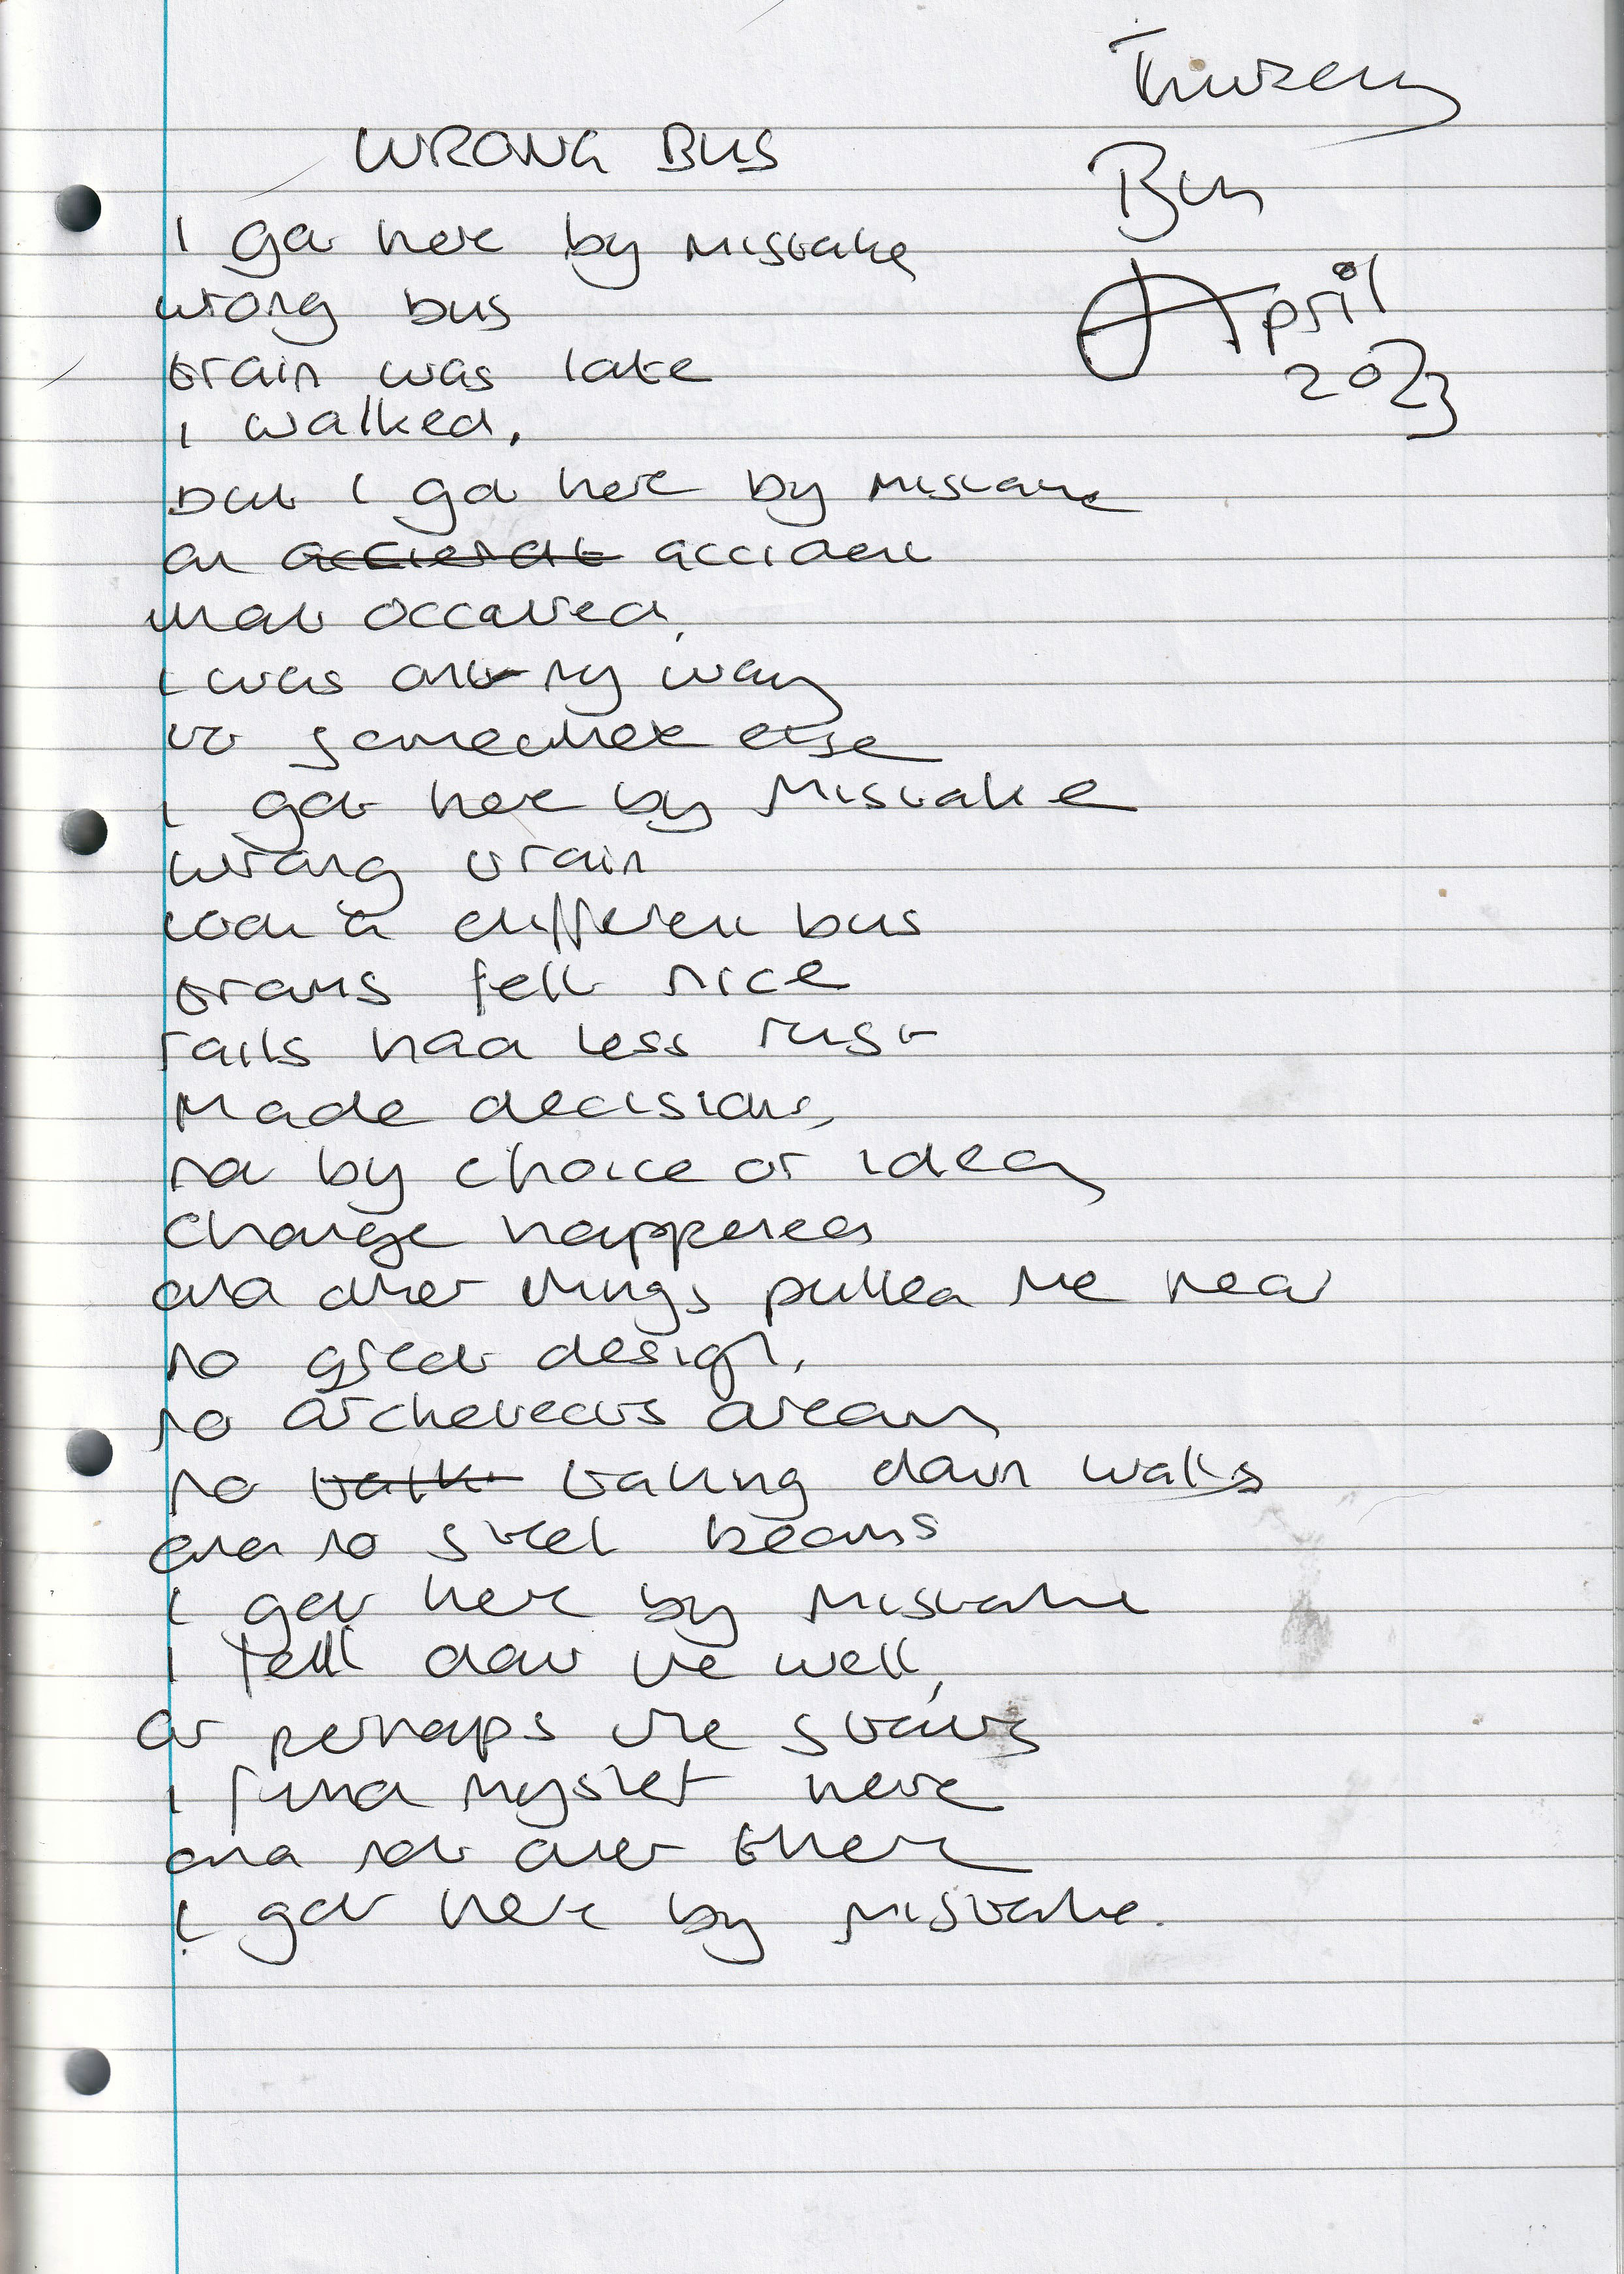 WRONG BUS
April
2023
I got here by mistake
wrong bus
train was late
I walked,
but I got here by mistake
an accident accident
that occured,
I was on my way
to somewhere else
I got here by Mistake
wrong train
took a different bus
trams felt nice
rails had less rust
Made decisions,
not by choice or idea,
change happened
and other things pulled me near
no great design,
no architects dream
no talk taking down walls
and no steel beams
I got here by mistake
I fell down the well,
or perhaps the stairs
I find myself here
and not over there
I got here by mistake.